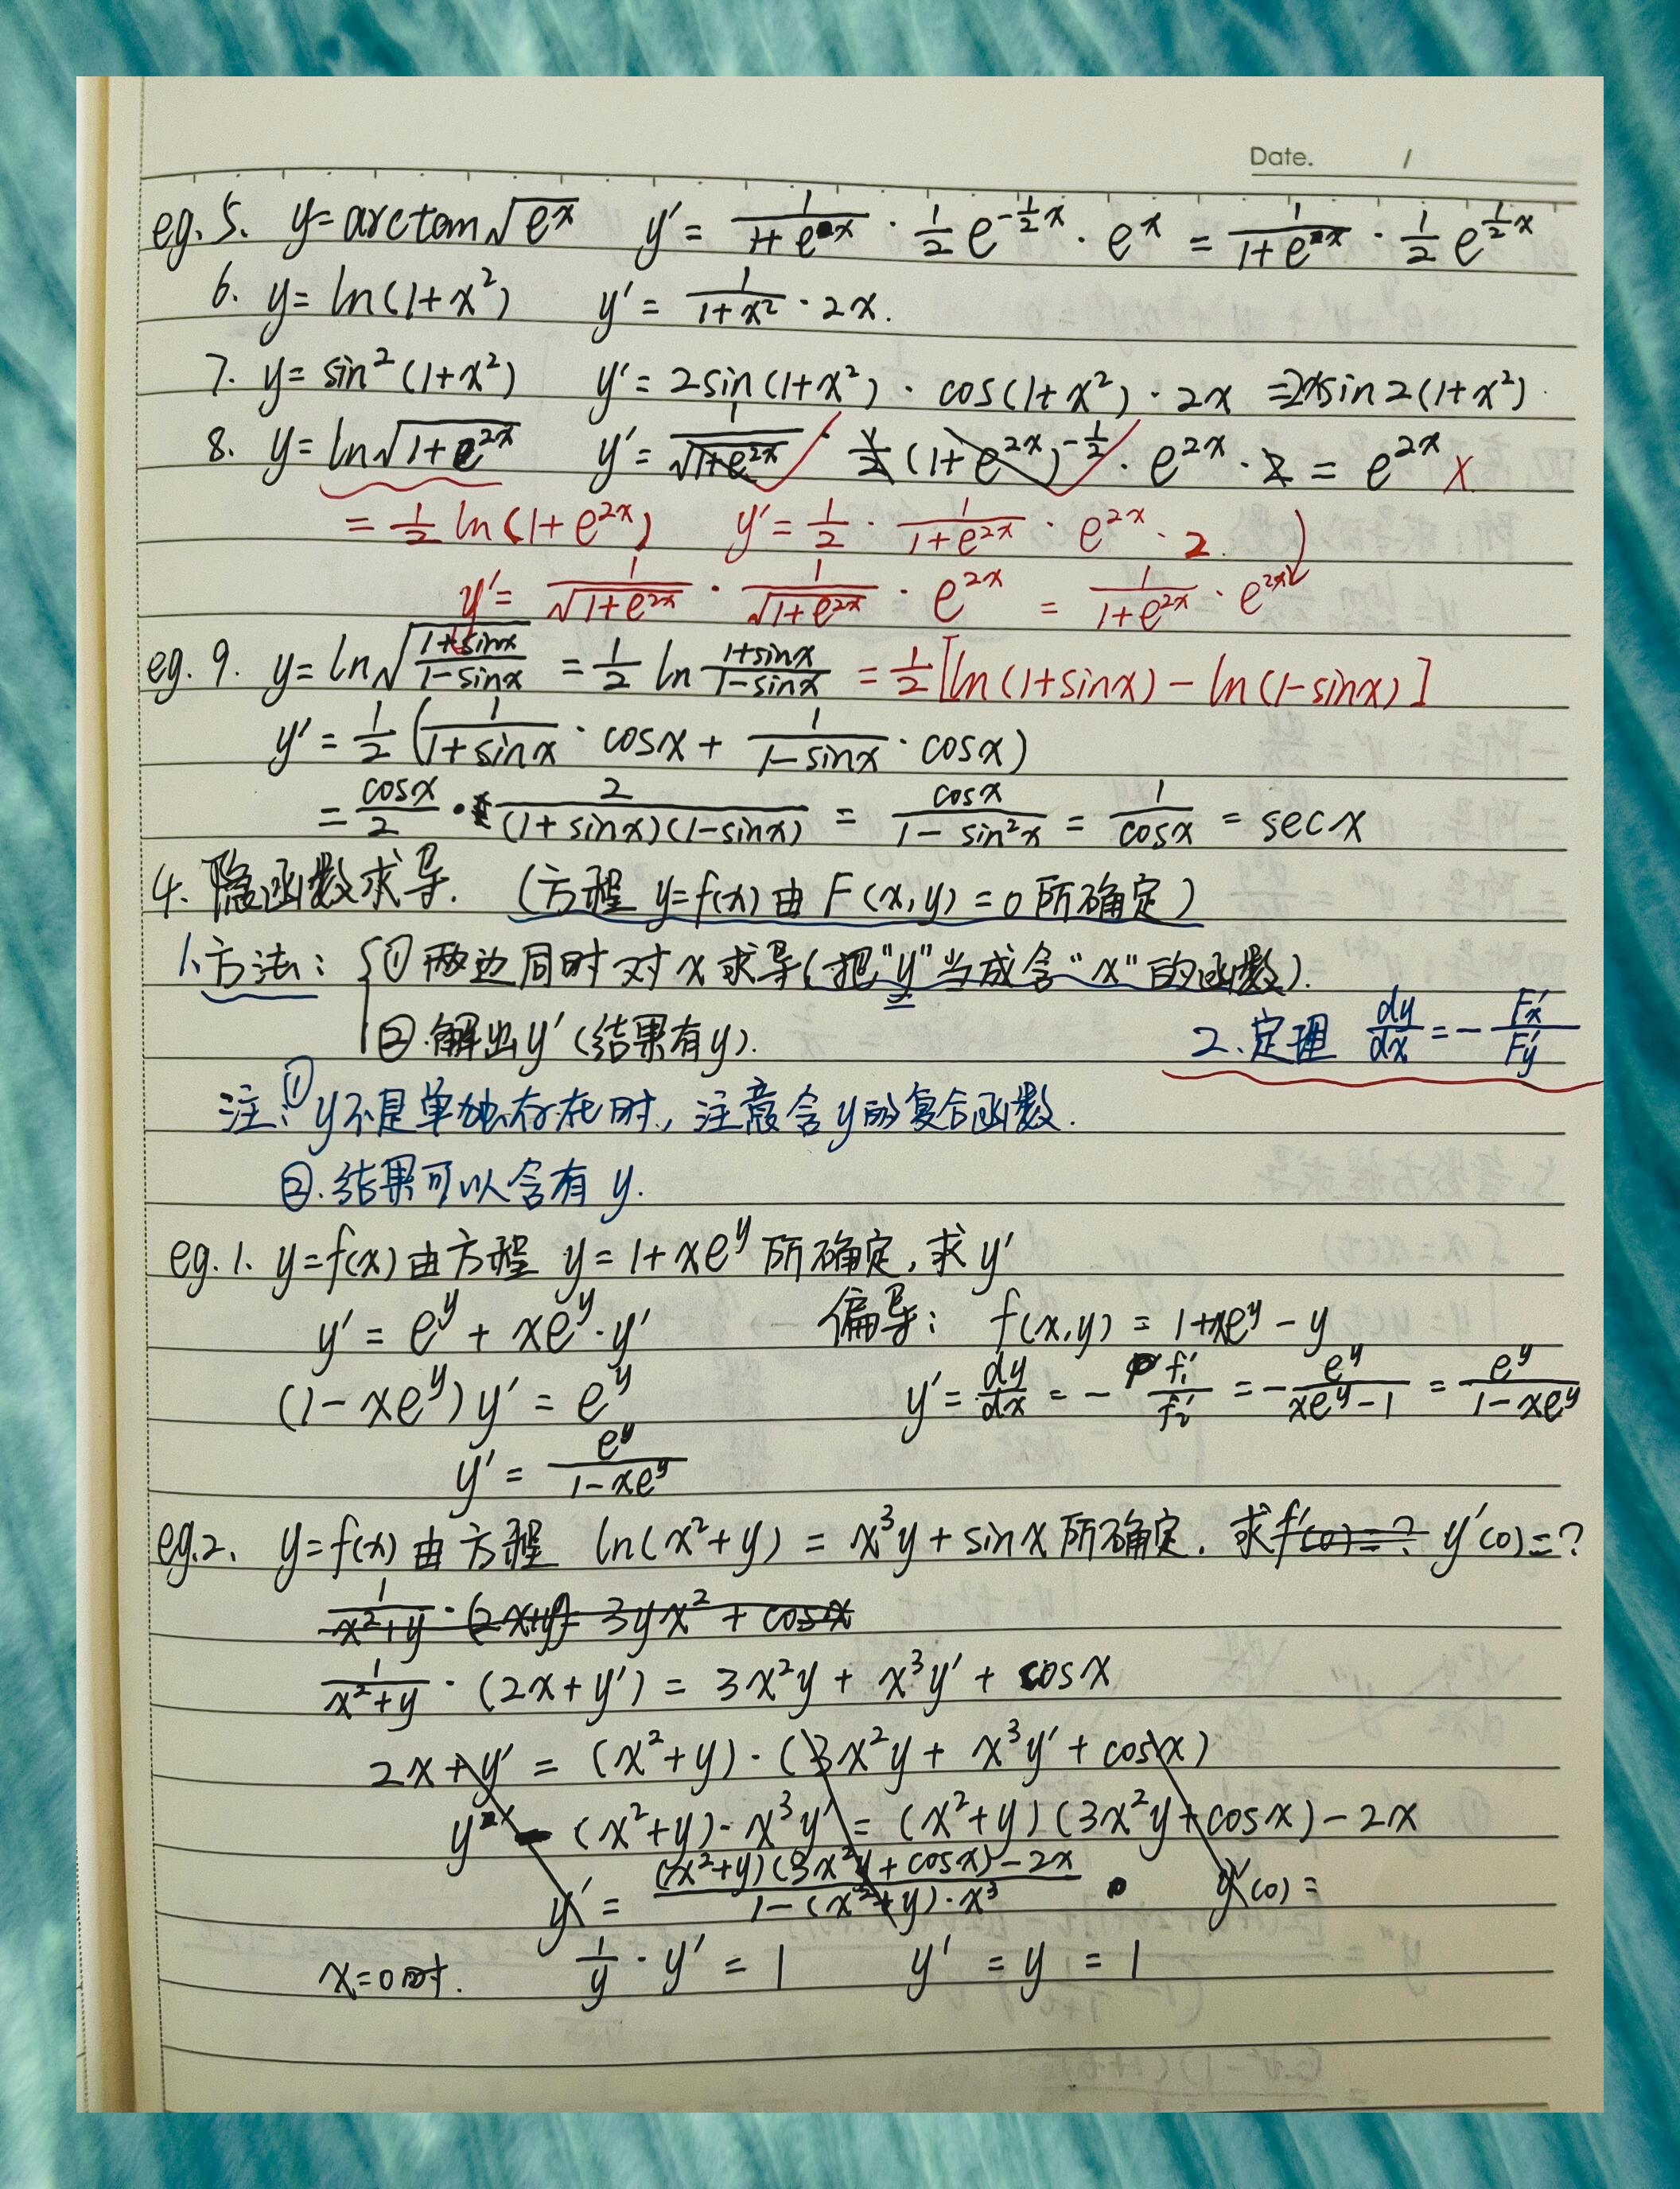 Date. /
eg.5. y=arctan√e^x  y′ = 1/(1+e^x) · 1/2 e^(-1/2x) · e^x = 1/(1+e^x) · 1/2 e^(1/2x)
6. y= ln(1+x²)  y′ = 1/(1+x²) · 2x.
7. y= sin²(1+x²)  y′= 2sin(1+x²) · cos(1+x²) · 2x =2xsin2(1+x²).
8. y= ln√(1+e^(2x))  y′= 1/√(1+e^(2x)) · 1/2 (1+e^(2x))^(-1/2) · e^(2x) · 2 = e^(2x) ×
= 1/2 ln(1+e^(2x))  y′= 1/2 · 1/(1+e^(2x)) · e^(2x) · 2.
y′= 1/√(1+e^(2x)) · 1/√(1+e^(2x)) · e^(2x) = 1/(1+e^(2x)) · e^(2x)
eg.9. y= ln√((1+sinx)/(1-sinx)) = 1/2 ln (1+sinx)/(1-sinx) = 1/2[ln(1+sinx) - ln(1-sinx)]
y′ = 1/2 (1/(1+sinx) · cosx + 1/(1-sinx) · cosx)
= cosx/2 · 2/((1+sinx)(1-sinx)) = cosx/(1-sin²x) = 1/cosx = secx
4. 隐函数求导. (方程 y=f(x) 由 F(x,y)=0 所确定)
1.方法: {① 两边同时对x求导(把"y"当成含"x"的函数).
②.解出y′(结果有y).  2.定理 dy/dx = - F′x/F′y
注:①y不是单独存在时, 注意含y的复合函数.
②.结果可以含有 y.
eg.1. y=f(x) 由方程 y=1+xe^y 所确定, 求y′
y′ = e^y + xe^y·y′  偏导: f(x,y) = 1+xe^y - y
(1-xe^y) y′ = e^y  y′= dy/dx = - f₁′/f₂′ = - e^y/(xe^y-1) = e^y/(1-xe^y)
y′ = e^y/(1-xe^y)
eg.2. y=f(x) 由方程 ln(x²+y) = x³y+sinx 所确定. 求f′(0)=? y′(0)=?
1/(x²+y) · (2x+y) = 3yx² + cosx
1/(x²+y) · (2x+y′) = 3x²y + x³y′ + cosx
2x+y′ = (x²+y) · (3x²y + x³y′ + cosx)
y′ - (x²+y)·x³y′ = (x²+y)(3x²y+cosx)-2x
y′ = ((x²+y)(3x²y+cosx)-2x)/(1-(x²+y)·x³)  y′(0)=
x=0时.  1/y · y′ = 1  y′ = y = 1